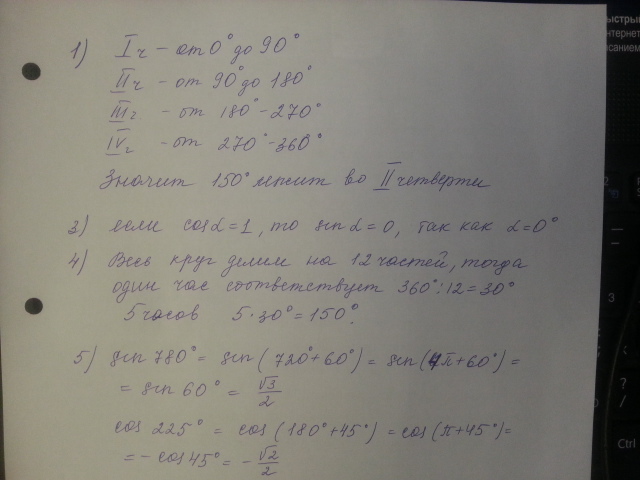 1) I ч – от 0° до 90°
II ч – от 90° до 180°
III ч – от 180° – 270°
IV ч – от 270° – 360°
Значит 150° лежит во II четверти
3) если cos α = 1, то sin α = 0, так как α = 0°
4) Весь круг делим на 12 частей, тогда
один час соответствует 360° : 12 = 30°
5 часов 5 · 30° = 150°.
5) sin 780° = sin (720° + 60°) = sin (4π + 60°) =
= sin 60° = √3/2
cos 225° = cos (180° + 45°) = cos (π + 45°) =
= – cos 45° = – √2/2
3
?
/
Ctrl